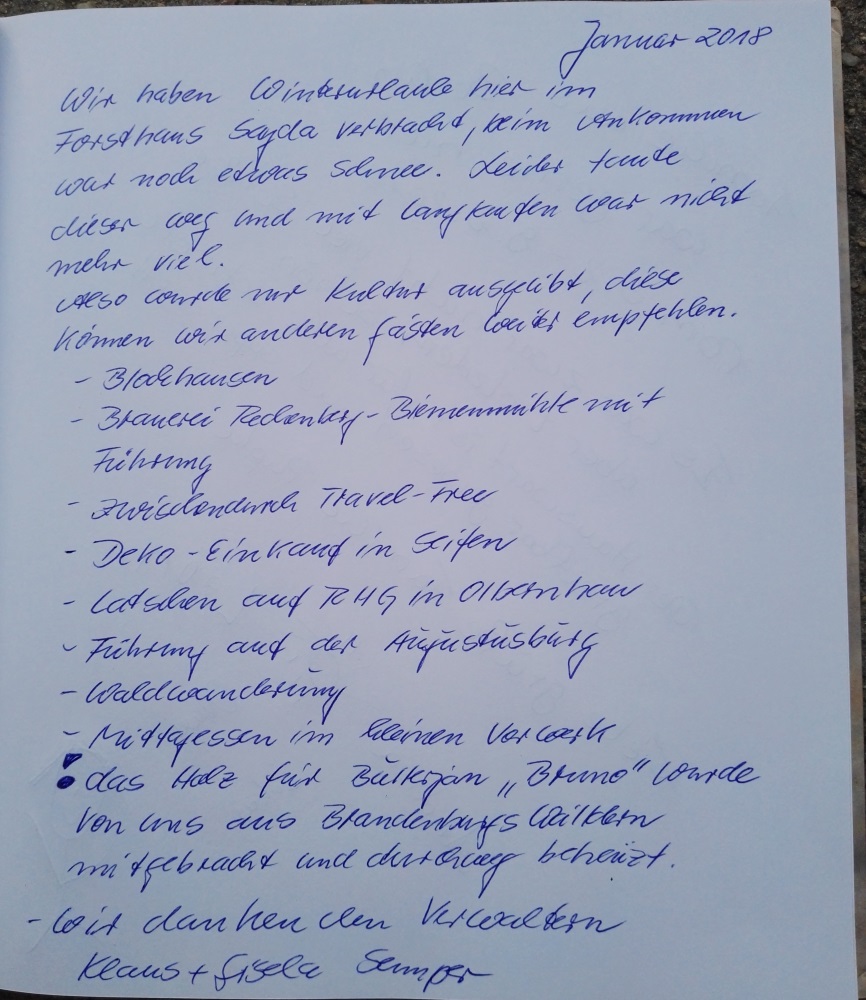 Januar 2018
Wir haben Winterurlaub hier im
Forsthaus Sayda verbracht, beim Ankommen
war noch etwas Schnee. Leider taute
dieser weg und mit langlaufen war nicht
mehr viel.
Also wurde nur Kultur ausgeübt, diese
können wir anderen Gästen weiter empfehlen.
- Blockhausen
- Brauerei Rechenberg-Bienenmühle mit
Führung
- zwischendurch Travel-Free
- Deko-Einkauf in Seifen
- Latschen auf RHG in Olbernhau
- Führung auf der Augustusburg
- Waldwanderung
- Mittagessen im kleinen Vorwerk
! das Holz für "Bruno" wurde
von uns aus Brandenburgs Wäldern
mitgebracht und durchweg beheizt.
- Wir danken den Verwaltern
Klaus + Gisela Semper